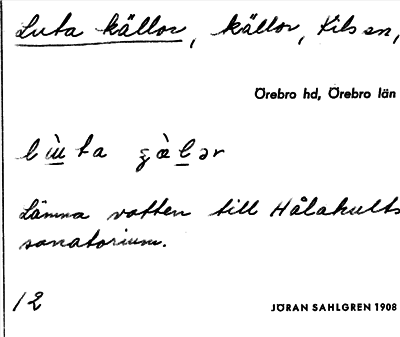 Luta källor, källor, Kilsen,
Örebro hd, Örebro län
Lämna vatten till Hålakults
sanatorium.
12
JÖRAN SAHLGREN 1908